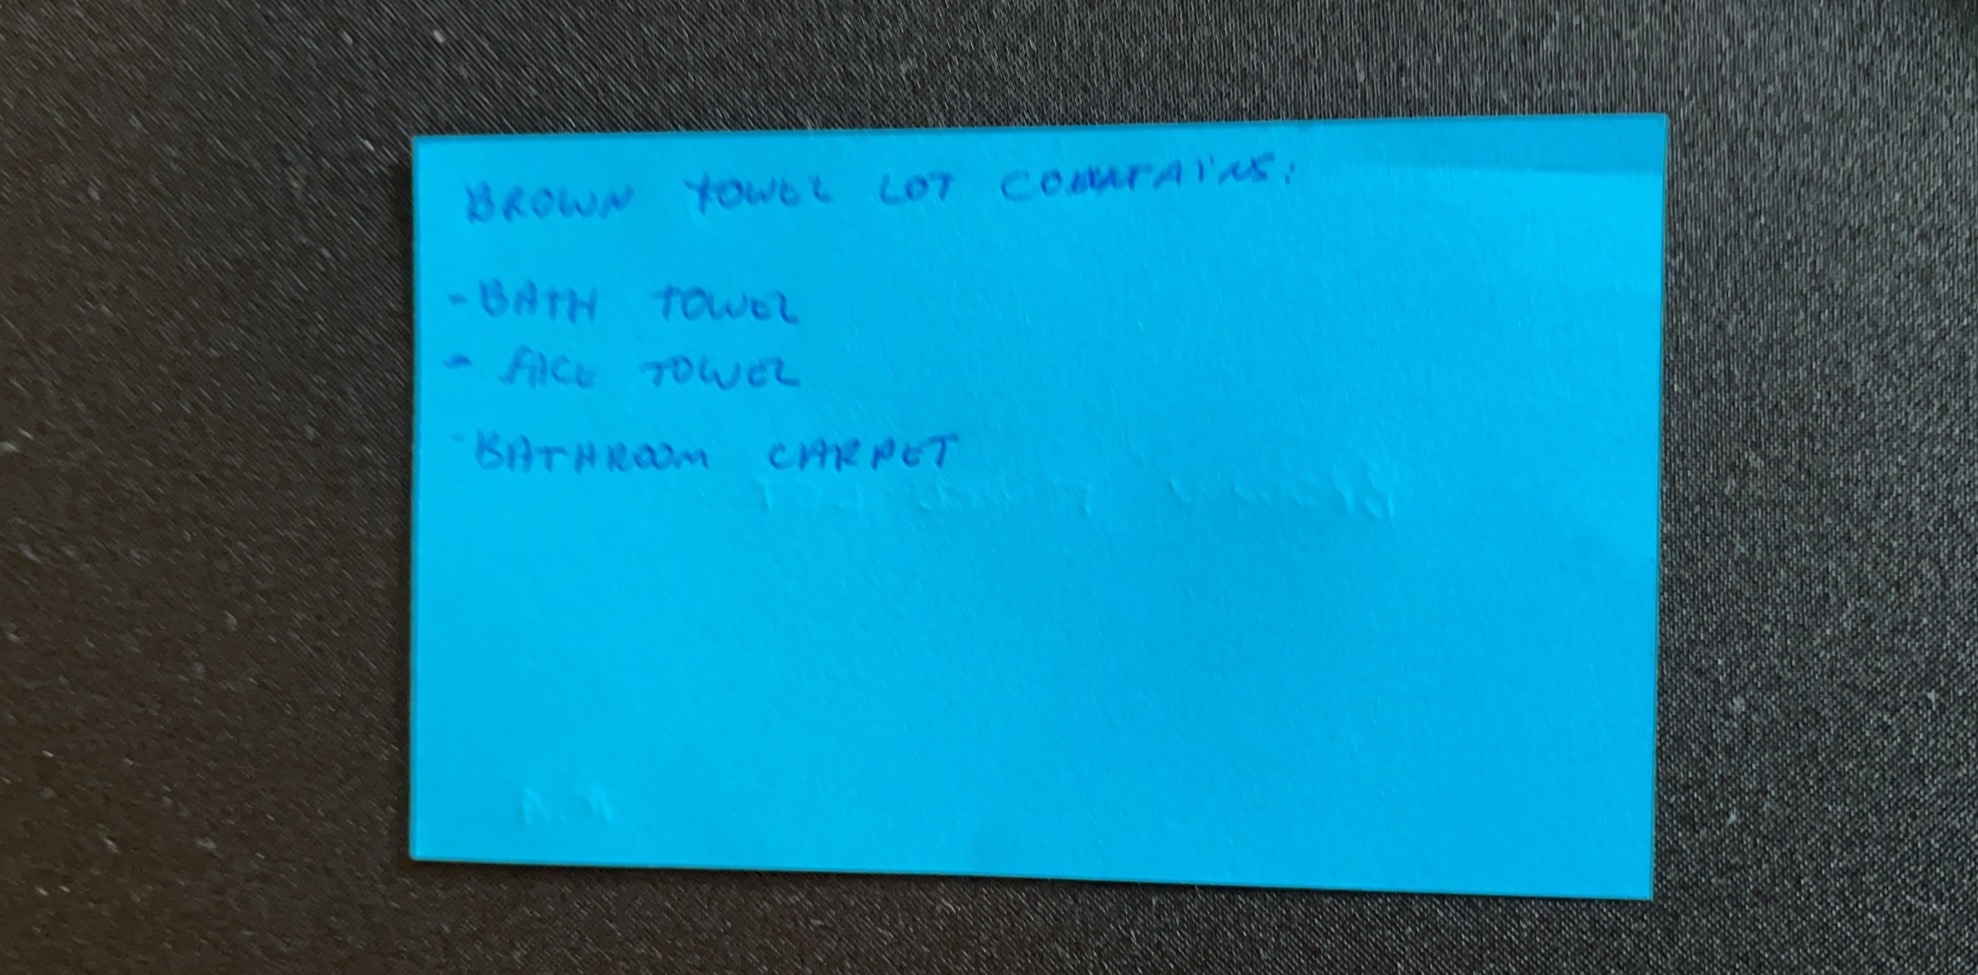 BROWN TOWEL LOT CONTAINS:
- BATH TOWEL
- FACE TOWEL
- BATHROOM CARPET